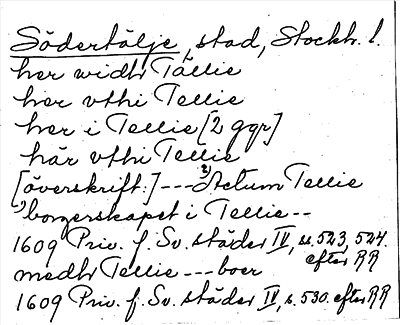 Södertälje, stad, Stockh. l.
her widh Tällie
her vthi Tellie
her i Tellie [2 ggr]
här vthi Tellie
[överskrift:] --- Actum Tellie
borgerskapet i Tellie --
1609 Priv. f. Sv. städer IV, ss. 523, 524.
efter RR
medh Tellie --- boer
1609 Priv. f. Sv. städer IV, s. 530. efter RR